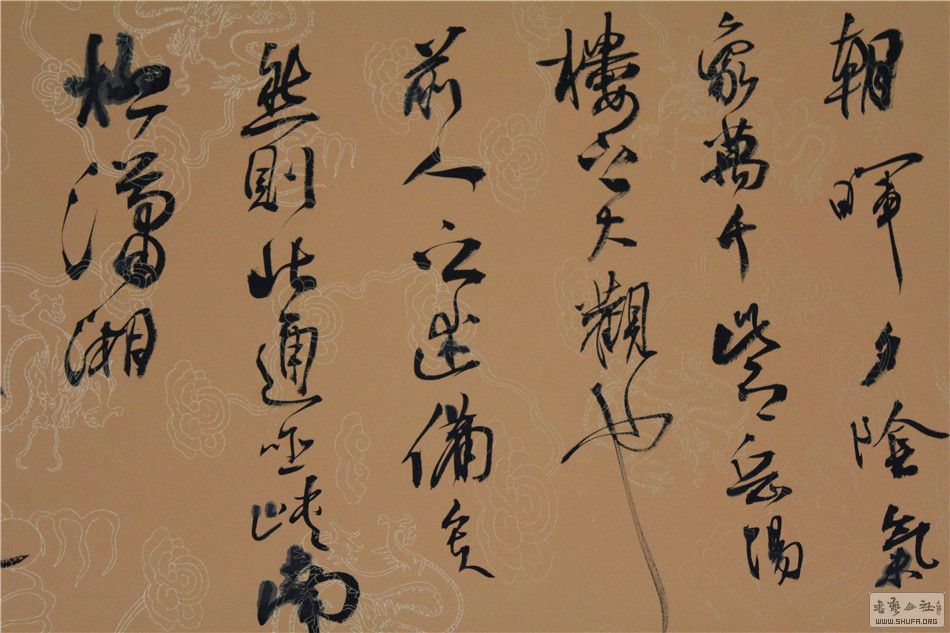 朝暉夕陰氣
象萬千此則岳陽
樓之大觀也
前人之述備矣
然則北通巫峽南
極瀟湘
书艺公社
WWW.SHUFA.ORG